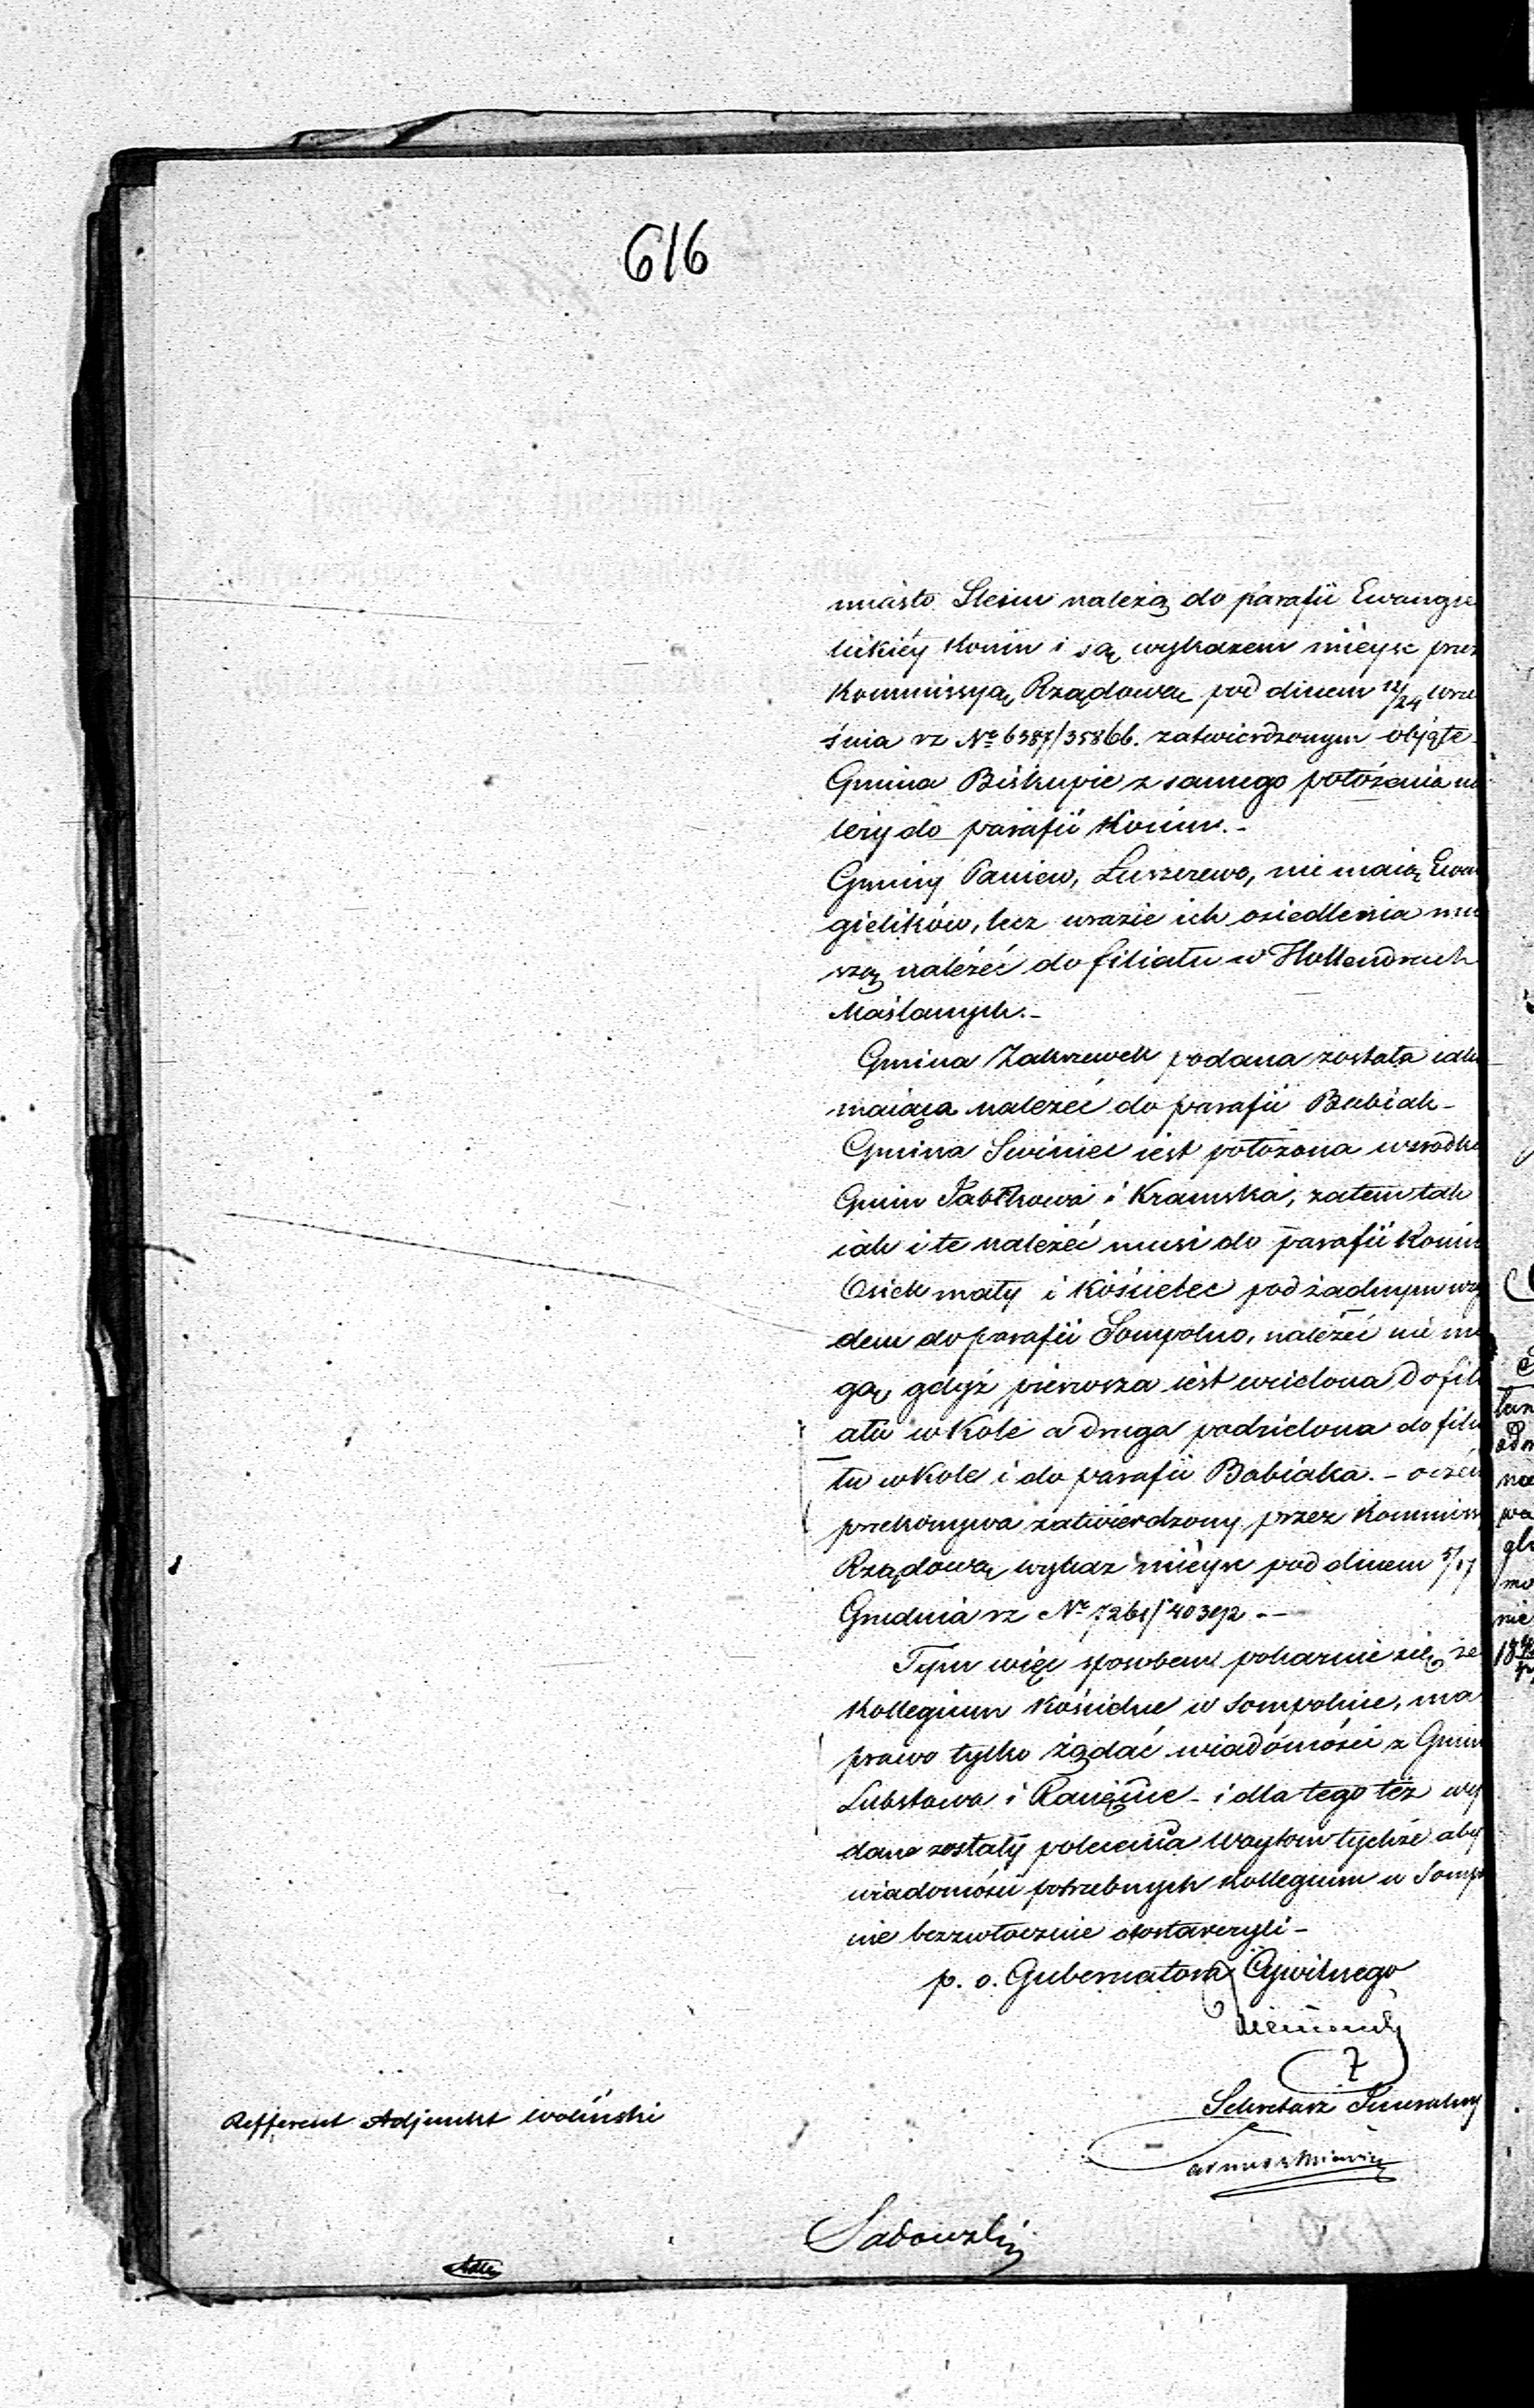 616
miasto Slesin należą do parafii Ewangie
lickiéy Konin i są wykazem mieysc prze
Kommissyą Rządową pod dniem 12/24 wrze
śnia rz No 6387/35866. zatwierdzonym objęte
Gmina Biskupie z samego położenia na
leży do parafii Konin.-
Gminy Paniew, Luszczewo, nie maią Ewan
gielików, lecz wrazie ich osiedlenia mu
szą należéć do filiału w Hollendrach
Maślanych.-
Gmina Zakrzewek podana została iako
maiąca należeć do parafii Babiak-
Gmina Swiniec iest położona wsrodku
Gmin i Kramska, zatem tak
iak i te należeć musi do parafii Konin
Osiek mały i Kościelec pod żadnym wzg
dem do parafii Sompolno, należeć nie mo
gą gdyż pierwsza iest wcielona do fili
ału w Kole a druga podzielona do filia
łu w Kole i do parafii Babiaka. - oczém
przekonywa zatwierdzony przez Kommiss
Rządową wykaz mieysc pod dniem 5/17
Grudnia rz No 7261/40392 --
Tym więc sposobem pokazuie się że
Kollegium Kościelne w Sompolnie, ma
prawo tylko żądać wiadómości z Gmin
Lubstowa i - i dla tego też wy
dane zostały polecenia Woytom tychże aby
wiadomości potrzebnych Kollegium w Sompol
nie bezzwłocznie dostarczyli-
p. o. Gubernatora Cywilnego
Sekretarz Jeneralny
Refferent Adjunkt Woliński
Sadowski